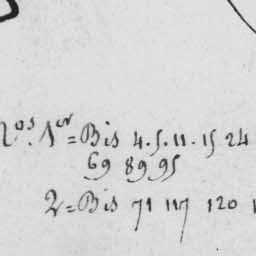 Nos. 1er = Bis 4. 5. 11. 15 24
69 89 95
2 = Bis 71 117 120